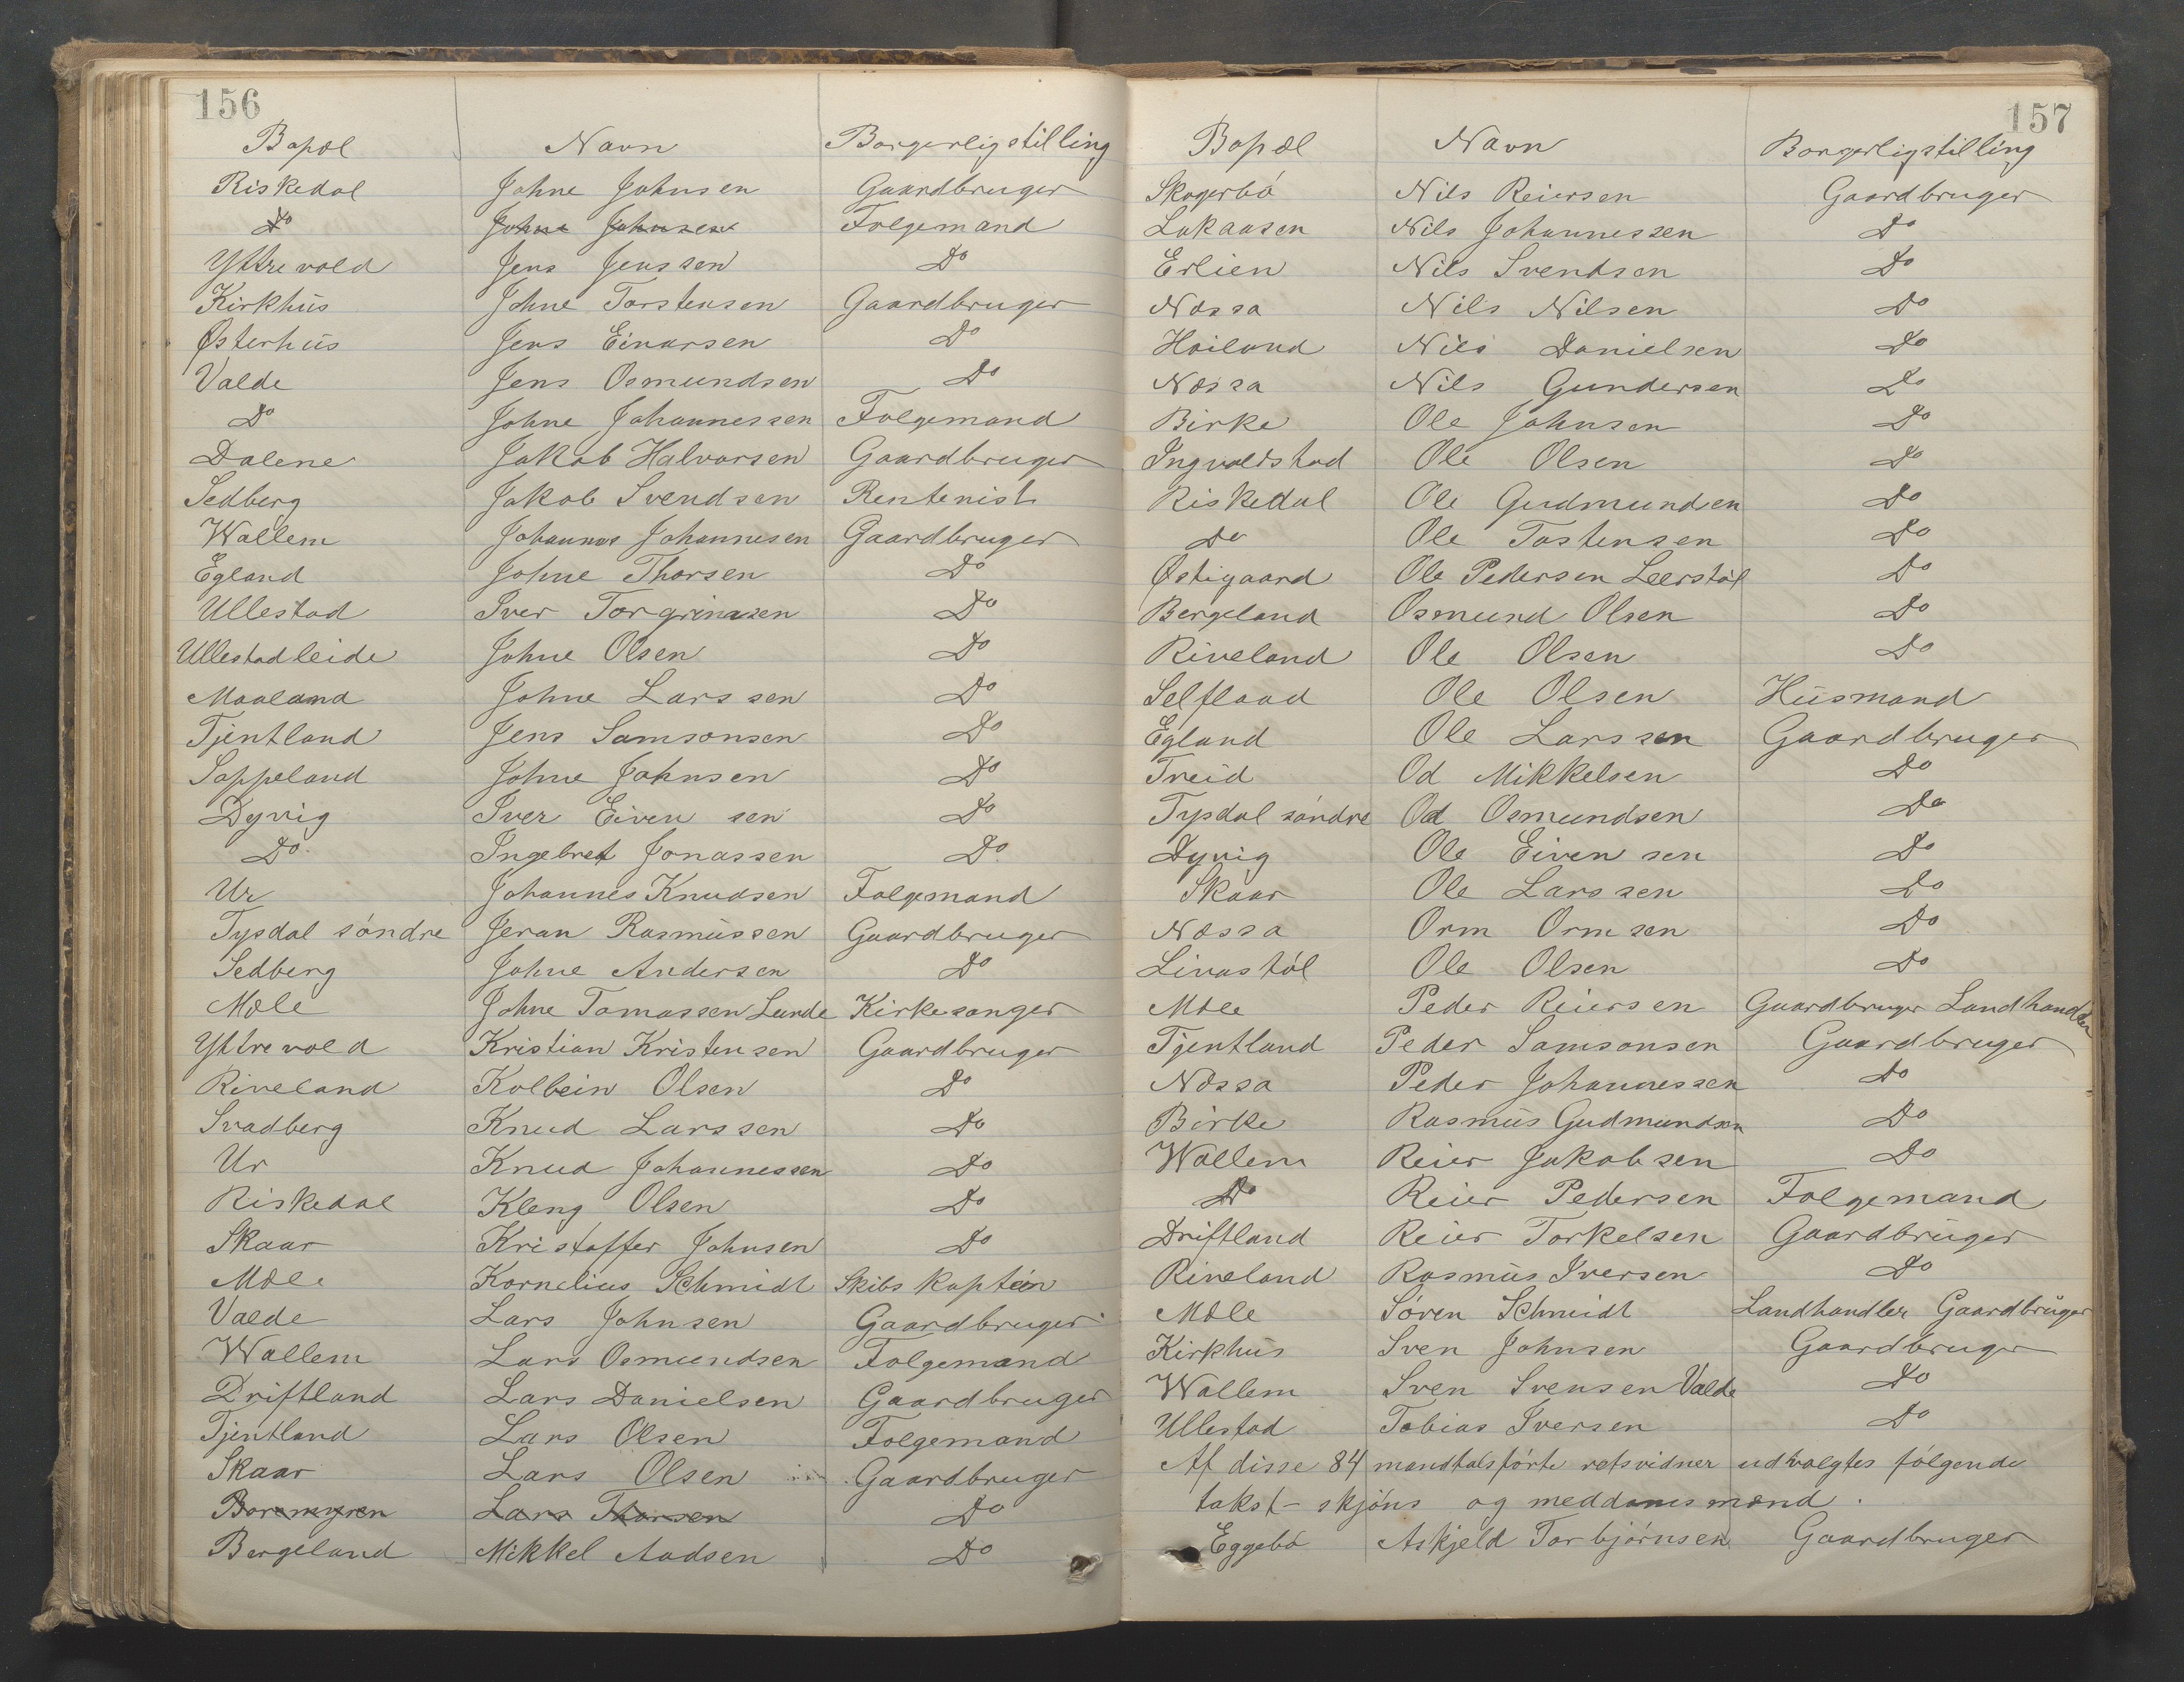 156
Bopæl Navn Borgerligstilling
Riskedal Johne Johnsen Gaardbruger
Do Johne Johnsen Folgemand
Yttrevold Jens Jenssen Do
Kirkhus Johne Torstensen Gaardbruger
Østerhus Jens Einarsen Do
Valde Jens Osmundsen Do
Do Johne Johannessen Folgemand
Dalene Jakob Halvorsen Gaardbruger
Sedberg Jakob Svendsen Rentenist
Wallem Johannes Johannesen Gaardbruger
Egland Johne Thorsen Do
Ullestad Iver Torgrimsen Do
Ullestadleide Johne Olsen Do
Maaland Johne Larssen Do
Tjentland Jens Samsonsen Do
Sappeland Johne Johnsen Do
Dyvig Iver Eivensen Do
Do Ingebret Jonassen Do
Ur Johannes Knudsen Folgemand
Tysdal söndre Jeran Rasmussen Gaardbruger
Sedberg Johne Andersen Do
Mæle Johne Tomassen Lunde Kirkesanger
Yttrevold Kristian Kristensen Gaardbruger
Riveland Kolbein Olsen Do
Svadberg Knud Larssen Do
Ur Knud Johannessen Do
Riskedal Kleng Olsen Do
Skaar Kristoffer Johnsen Do
Mæle Kornelius Schmidt Skibskaptein
Valde Lars Johnsen Gaardbruger
Wallem Lars Osmundsen Folgemand
Driftland Lars Danielsen Gaardbruger
Tjentland Lars Olsen Folgemand
Skaar Lars Olsen Gaardbruger
Boremyren Lars Thorsen Do
Bergeland Mikkel Aadsen Do
157
Bopæl Navn Borgerligstilling
Skogerbö Nils Reiersen Gaardbruger
Lukaasen Nils Johannessen Do
Erlien Nils Svendsen Do
Næssa Nils Nilsen Do
Hoiland Nils Danielsen Do
Næssa Nils Gundersen Do
Birke Ole Johnsen Do
Ingvaldstad Ole Olsen Do
Riskedal Ole Gudmundsen Do
Do Ole Tostensen Do
Østigaard Ole Pedersen Leerstöl Do
Bergeland Osmund Olsen Do
Riveland Ole Olsen Do
Selflaad Ole Olsen Husmand
Egland Ole Larssen Gaardbruger
Treid Od Mikkelsen Do
Tysdal söndre Od Osmundsen Do
Dyvig Ole Eivensen Do
Skaar Ole Larssen Do
Næssa Orm Ormsen Do
Livastöl Ole Olsen Do
Mæle Peder Reiersen Gaardbruger Landhandler
Tjentland Peder Samsonsen Gaardbruger
Næssa Peder Johannessen Do
Birke Rasmus Gudmundsen Do
Wallem Reier Jakobsen Do
Do Reier Pedersen Folgemand
Driftland Reier Torkelsen Gaardbruger
Riveland Rasmus Iversen Do
Mæle Sören Schmidt Landhandler Gaardbruger
Kirkhus Sven Johnsen Gaardbruger
Wallem Sven Svensen Valde Do
Ullestad Tobias Iversen Do
Af disse 84 mandtalsförte retsvidner udvalgtes fölgende
takst- skjöns og meddomsmænd.
Eggebö Askjeld Torbjörnsen Gaardbruger